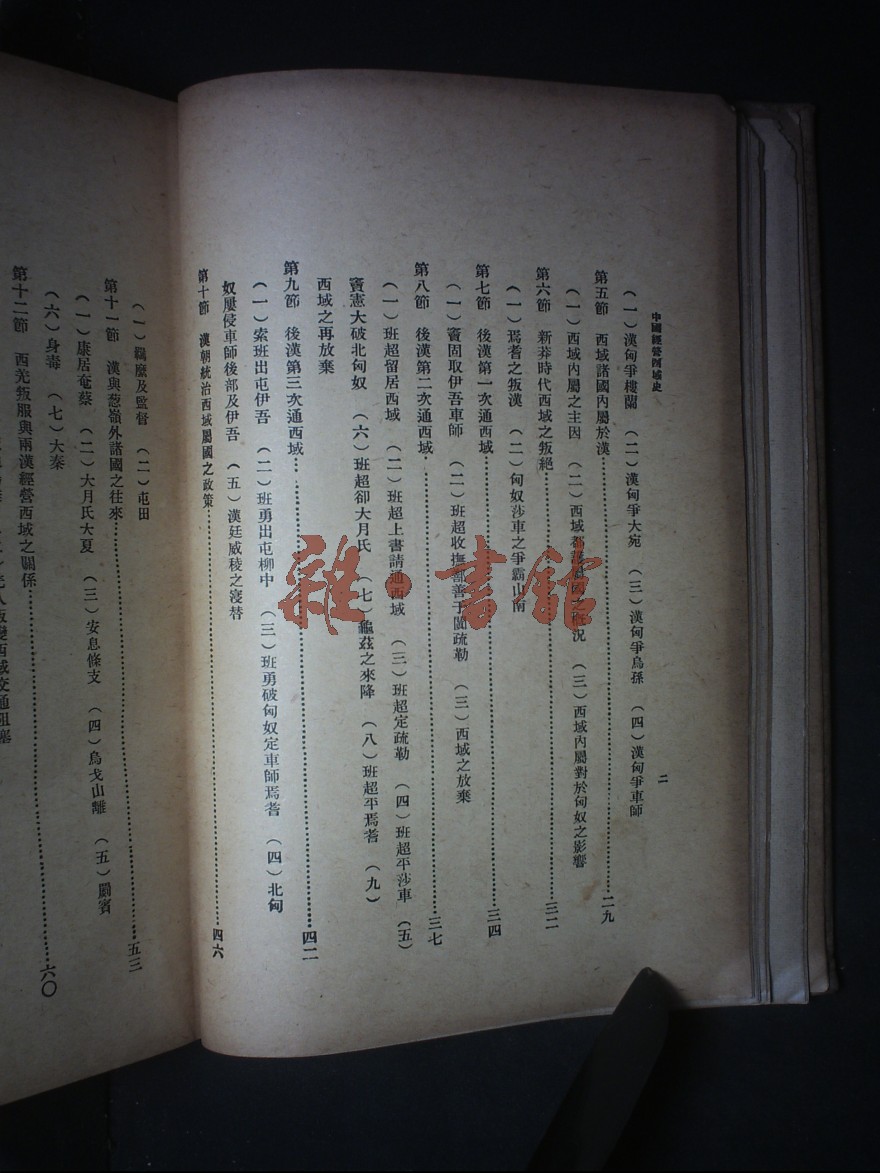 中國經營西域史
二
（一）漢匈爭樓蘭　（二）漢匈爭大宛　（三）漢匈爭烏孫　（四）漢匈爭車師
第五節　西域諸國內屬於漢……二九
（一）西域內屬之主因　（二）西域都護屬國之概況　（三）西域內屬對於匈奴之影響
第六節　新莽時代西域之叛絕……三二
（一）焉耆之叛漢　（二）匈奴莎車之爭霸山南
第七節　後漢第一次通西域……三四
（一）竇固取伊吾車師　（二）班超收撫鄯善于闐疏勒　（三）西域之放棄
第八節　後漢第二次通西域……三七
（一）班超留居西域　（二）班超上書請通西域　（三）班超定疏勒　（四）班超平莎車　（五）
竇憲大破北匈奴　（六）班超卻大月氏　（七）龜茲之來降　（八）班超平焉耆　（九）
西域之再放棄
第九節　後漢第三次通西域……四二
（一）索班出屯伊吾　（二）班勇出屯柳中　（三）班勇破匈奴定車師焉耆　（四）北匈
奴屢侵車師後部及伊吾　（五）漢廷威稜之寖替
第十節　漢朝統治西域屬國之政策……四六
（一）羈縻及監督　（二）屯田
第十一節　漢與葱嶺外諸國之往來……五三
（一）康居奄蔡　（二）大月氏大夏　（三）安息條支　（四）烏弋山離　（五）罽賓
（六）身毒　（七）大秦
第十二節　西羌叛服與兩漢經營西域之關係……六〇
叛變西域交通阻塞
雜·書館